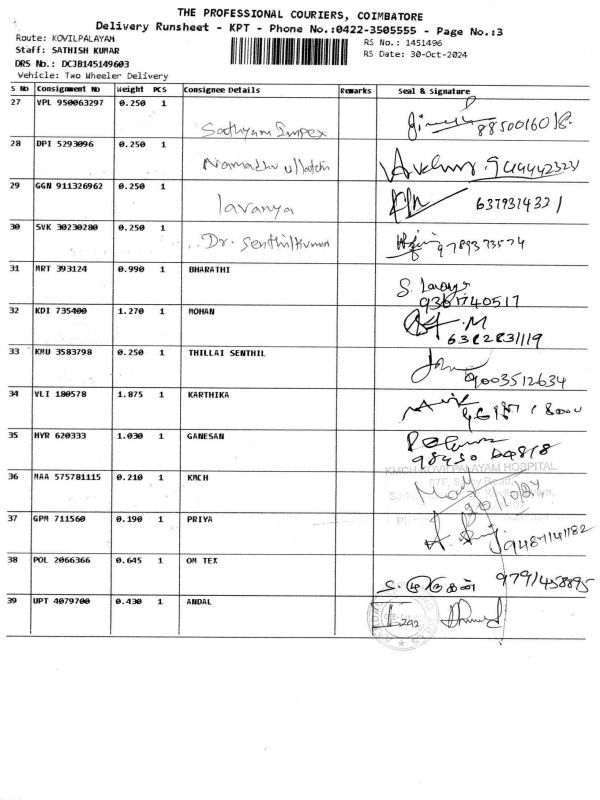 THE PROFESSIONAL COURIERS, COIMBATORE
Delivery Runsheet - KPT - Phone No.:0422-3505555 - Page No.:3
Route: KOVILPALAYAM
RS No.: 1451496
Staff: SATHISH KUMAR
RS Date: 30-Oct-2024
DRS No.: DCJB145149603
Vehicle: Two Wheeler Delivery
S No Consignment No Weight PCS Consignee Details Remarks Seal & Signature
27 VPL 950063297 0.250 1 Sathyam Impex
28 DPI 5293096 0.250 1
29 GGN 911326962 0.250 1 lavanya
30 SVK 30230280 0.250 1 Dr. Senthilkumar 9789373574
31 MRT 393124 0.990 1 BHARATHI
32 KDI 735400 1.270 1 MOHAN
33 KMU 3583798 0.250 1 THILLAI SENTHIL 9003512634
34 VLI 180578 1.875 1 KARTHIKA
35 HYR 620333 1.030 1 GANESAN
KMCH KOVILPALAYAM HOSPITAL
36 MAA 575781115 0.210 1 KMCH
37 GPM 711560 0.190 1 PRIYA
38 POL 2066366 0.645 1 OM TEX S. முருகன் 9791458895
39 UPT 4079700 0.430 1 ANDAL